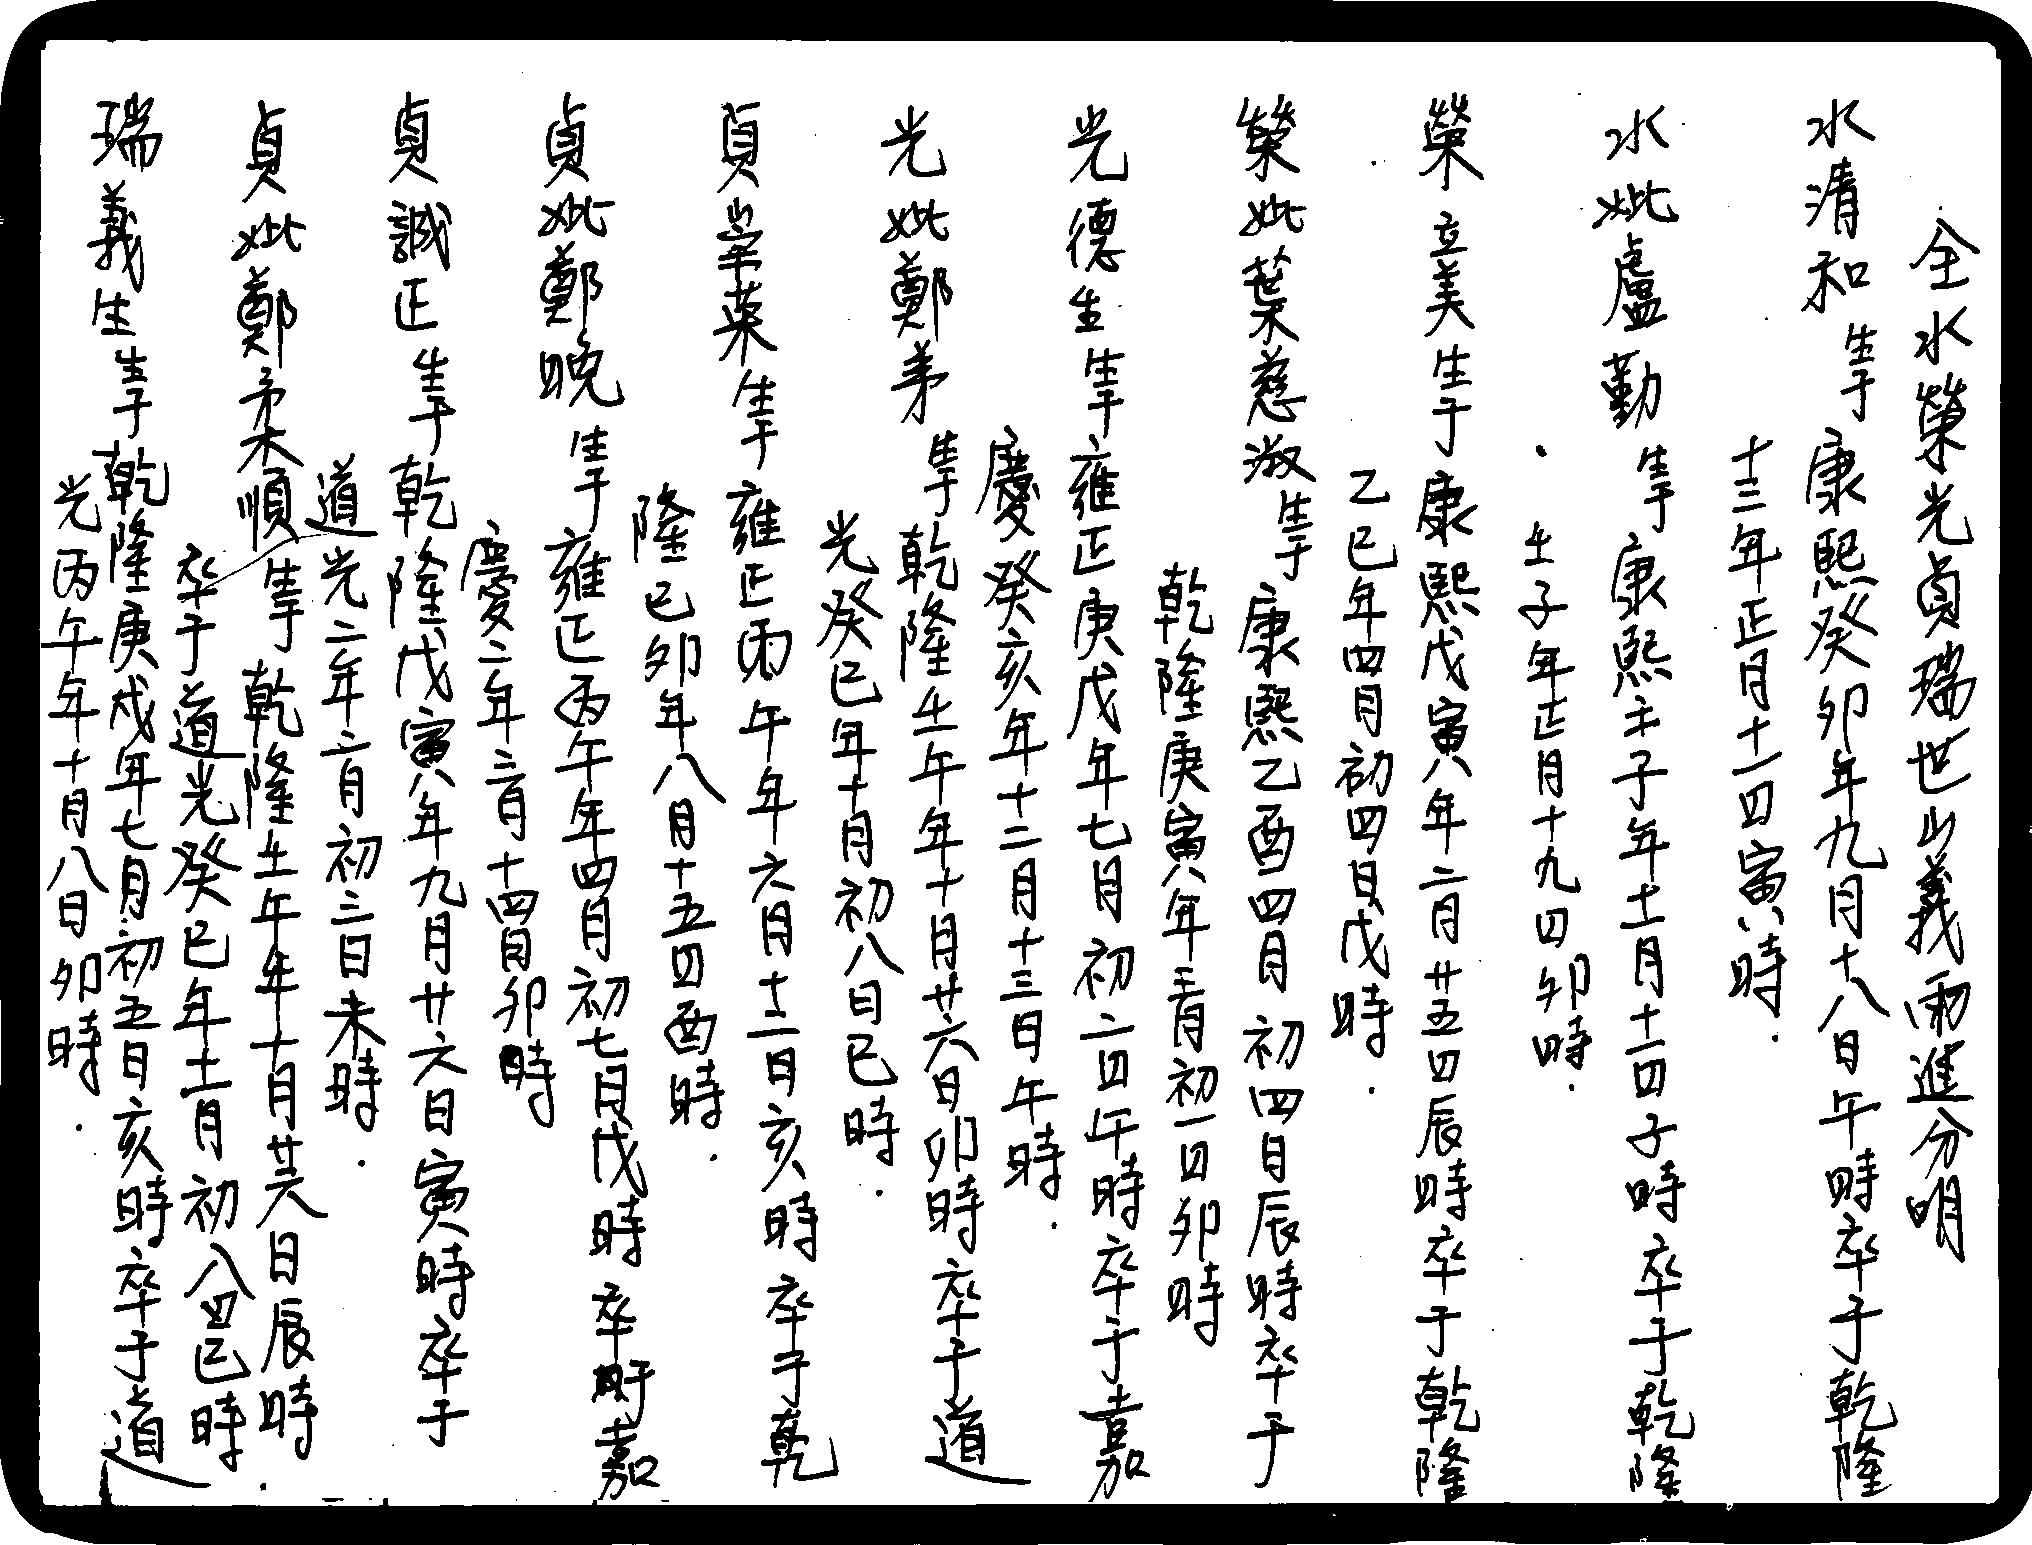 全水榮光貞瑞世山義雨進分明
水清和生于康熙癸卯年九月十八日午時卒于乾隆
十三年正月十一日寅時
水妣盧勤生于康熙壬子年十一月十一日子時卒于乾隆
壬子年正月十九日卯時
榮立美生于康熙戊寅年二月廿五日辰時卒于乾隆
乙巳年四月初四日戌時
榮妣葉慈淑生于康熙乙酉四月初四日辰時卒于
乾隆庚寅年三月初一日卯時
光德生生于雍正庚戌年七月初二日午時卒于嘉
慶癸亥年十二月十三日午時
光妣鄭弟生于乾隆壬午年十月廿六日卯時卒于道
光癸巳年十月初八日巳時
貞業生于雍正丙午年六月十二日亥時卒于乾
隆己卯年八月十五日酉時
貞妣鄭晚生于雍正丙午年四月初七日戌時卒于嘉
慶二年三月十四日卯時
貞誠正生于乾隆戊寅年九月廿六日寅時卒于
道光二年二月初三日未時
貞妣鄭柔順生于乾隆壬午年十月廿六日辰時
卒于道光癸巳年十一月初八日巳時
瑞義生生于乾隆庚戌年七月初五日亥時卒于道
光丙午年十月八日卯時